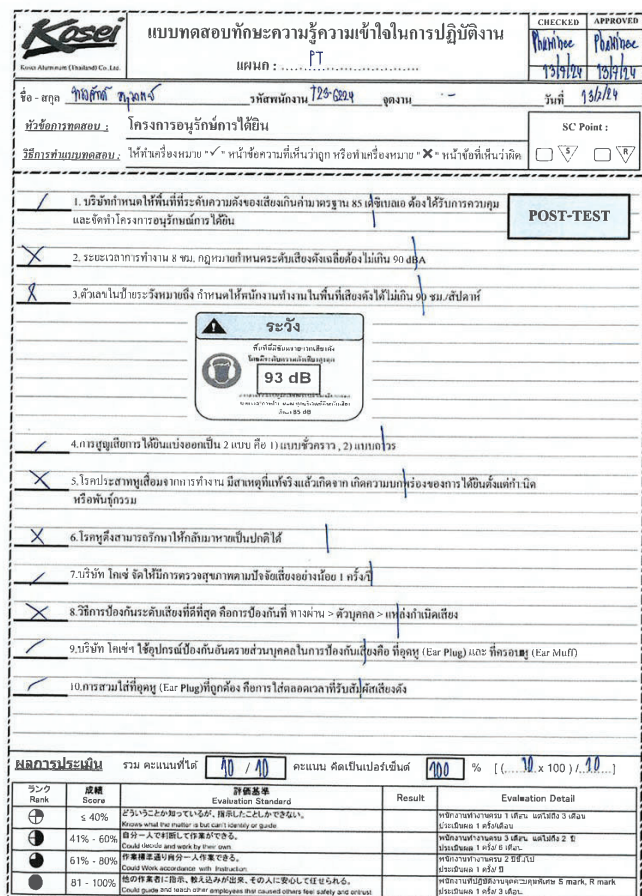 Kosei
Kosei Aluminum (Thailand) Co.,Ltd.
แบบทดสอบทักษะความรู้ความเข้าใจในการปฏิบัติงาน
แผนก : PT
CHECKED
APPROVED
13/7/24
13/7/24
ชื่อ - สกุล
รหัสพนักงาน T23-6224 จุดงาน -
วันที่ 13/7/24
หัวข้อการทดสอบ : โครงการอนุรักษ์การได้ยิน
SC Point :
วิธีการทำแบบทดสอบ : ให้ทำเครื่องหมาย "✓" หน้าข้อความที่เห็นว่าถูก หรือทำเครื่องหมาย "✕" หน้าข้อที่เห็นว่าผิด
S
R
/ 1. บริษัทกำหนดให้พื้นที่ที่ระดับความดังของเสียงเกินค่ามาตรฐาน 85 เดซิเบลเอ ต้องได้รับการควบคุม
และจัดทำโครงการอนุรักษ์การได้ยิน
POST-TEST
✕ 2. ระยะเวลาการทำงาน 8 ชม. กฎหมายกำหนดระดับเสียงดังเฉลี่ยต้องไม่เกิน 90 dBA
✕ 3.ตัวเลขในป้ายระวังหมายถึง กำหนดให้พนักงานทำงานในพื้นที่เสียงดังได้ไม่เกิน 90 ชม./สัปดาห์
ระวัง
93 dB
/ 4.การสูญเสียการได้ยินแบ่งออกเป็น 2 แบบ คือ 1) แบบชั่วคราว , 2) แบบถาวร
✕ 5.โรคประสาทหูเสื่อมจากการทำงาน มีสาเหตุที่แท้จริงแล้วเกิดจาก เกิดความบกพร่องของการได้ยินตั้งแต่กำเนิด
หรือพันธุ์กรรม
✕ 6.โรคหูตึงสามารถรักษาให้กลับมาหายเป็นปกติได้
/ 7.บริษัท โคเซ่ จัดให้มีการตรวจสุขภาพตามปัจจัยเสี่ยงอย่างน้อย 1 ครั้ง/ปี
✕ 8.วิธีการป้องกันระดับเสียงที่ดีที่สุด คือการป้องกันที่ ทางผ่าน > ตัวบุคคล > แหล่งกำเนิดเสียง
/ 9.บริษัท โคเซ่ฯ ใช้อุปกรณ์ป้องกันอันตรายส่วนบุคคลในการป้องกันเสียงคือ ที่อุดหู (Ear Plug) และ ที่ครอบหู (Ear Muff)
/ 10.การสวมใส่ที่อุดหู (Ear Plug)ที่ถูกต้อง คือการใส่ตลอดเวลาที่รับสัมผัสเสียงดัง
ผลการประเมิน รวม คะแนนที่ได้ 10 / 10 คะแนน คิดเป็นเปอร์เซ็นต์ 100 % [ (....10.x 100 ) /.10....]
ランク Rank
成績 Score
評価基準 Evaluation Standard
Result
Evaluation Detail
≤ 40%
どういうことか知っているが、指示したことしかできない。
Knows what the matter is but can't identify or guide
พนักงานทำงานครบ 1 เดือน แต่ไม่ถึง 3 เดือน
ประเมินผล 1 ครั้ง/เดือน
41% - 60%
自分一人で判断して作業ができる。
Could decide and work by their own.
พนักงานทำงานครบ 3 เดือน แต่ไม่ถึง 2 ปี
ประเมินผล 1 ครั้ง/ 6 เดือน
61% - 80%
作業標準通り自分一人作業できる。
Could Work accordance with Instruction.
พนักงานทำงานครบ 2 ปีขึ้นไป
ประเมินผล 1 ครั้ง/ ปี
81 - 100%
他の作業者に指示、教え込みが出来、その人に安心して任せられる。
Could guide and teach other employees that caused others feel safety and entrust
พนักงานที่ปฏิบัติงานจุดควบคุมพิเศษ S mark, R mark
ประเมินผล 1 ครั้ง/ 3 เดือน